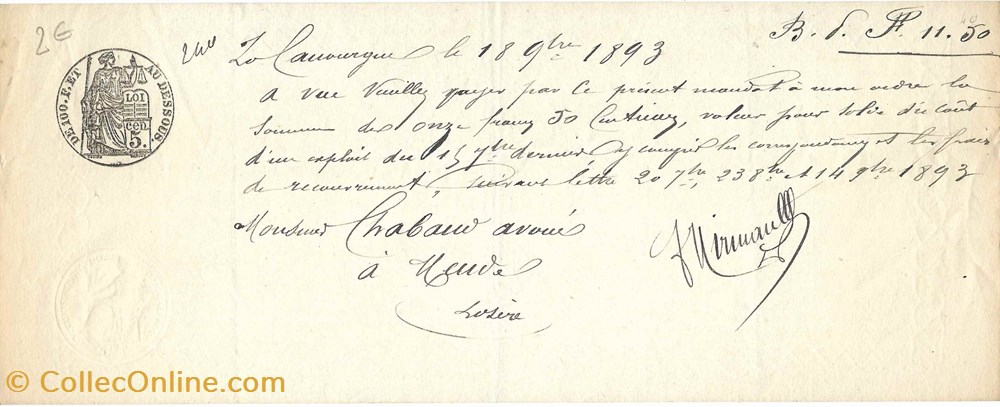 2€
DE 100.F.ET AU DESSOUS.
LOI
5.
B. P. F. 11.50
La Canourgue le 18 9bre 1893
A vue veuillez payer par ce présent mandat à mon ordre la
somme de onze francs 50 centimes, valeur pour solde du coût
d'un exploit du 15 7bre dernier y compris les correspondances et les frais
de recouvrement, suivant lettre 20 7bre, 23 8bre et 14 9bre 1893
Monsieur Chabaud avoué
à Mende
Lozère
© CollecOnline.com